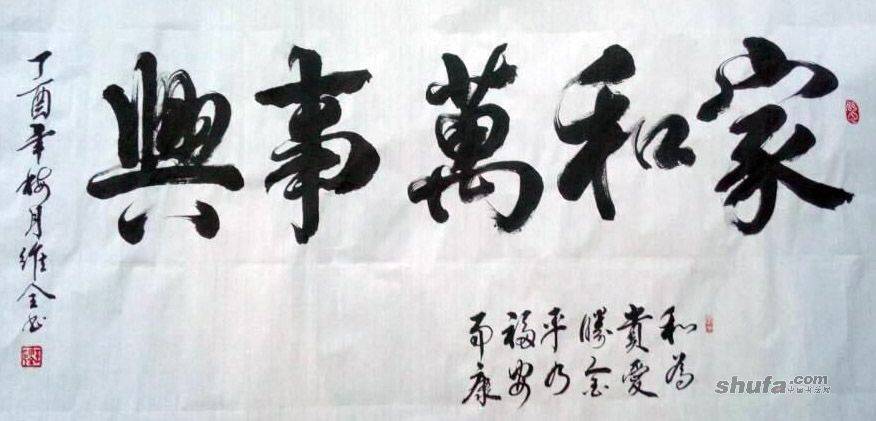 家和萬事興
和為
貴愛
勝金
平乃
福安
而康
丁酉年梅月維全書
shufa.com